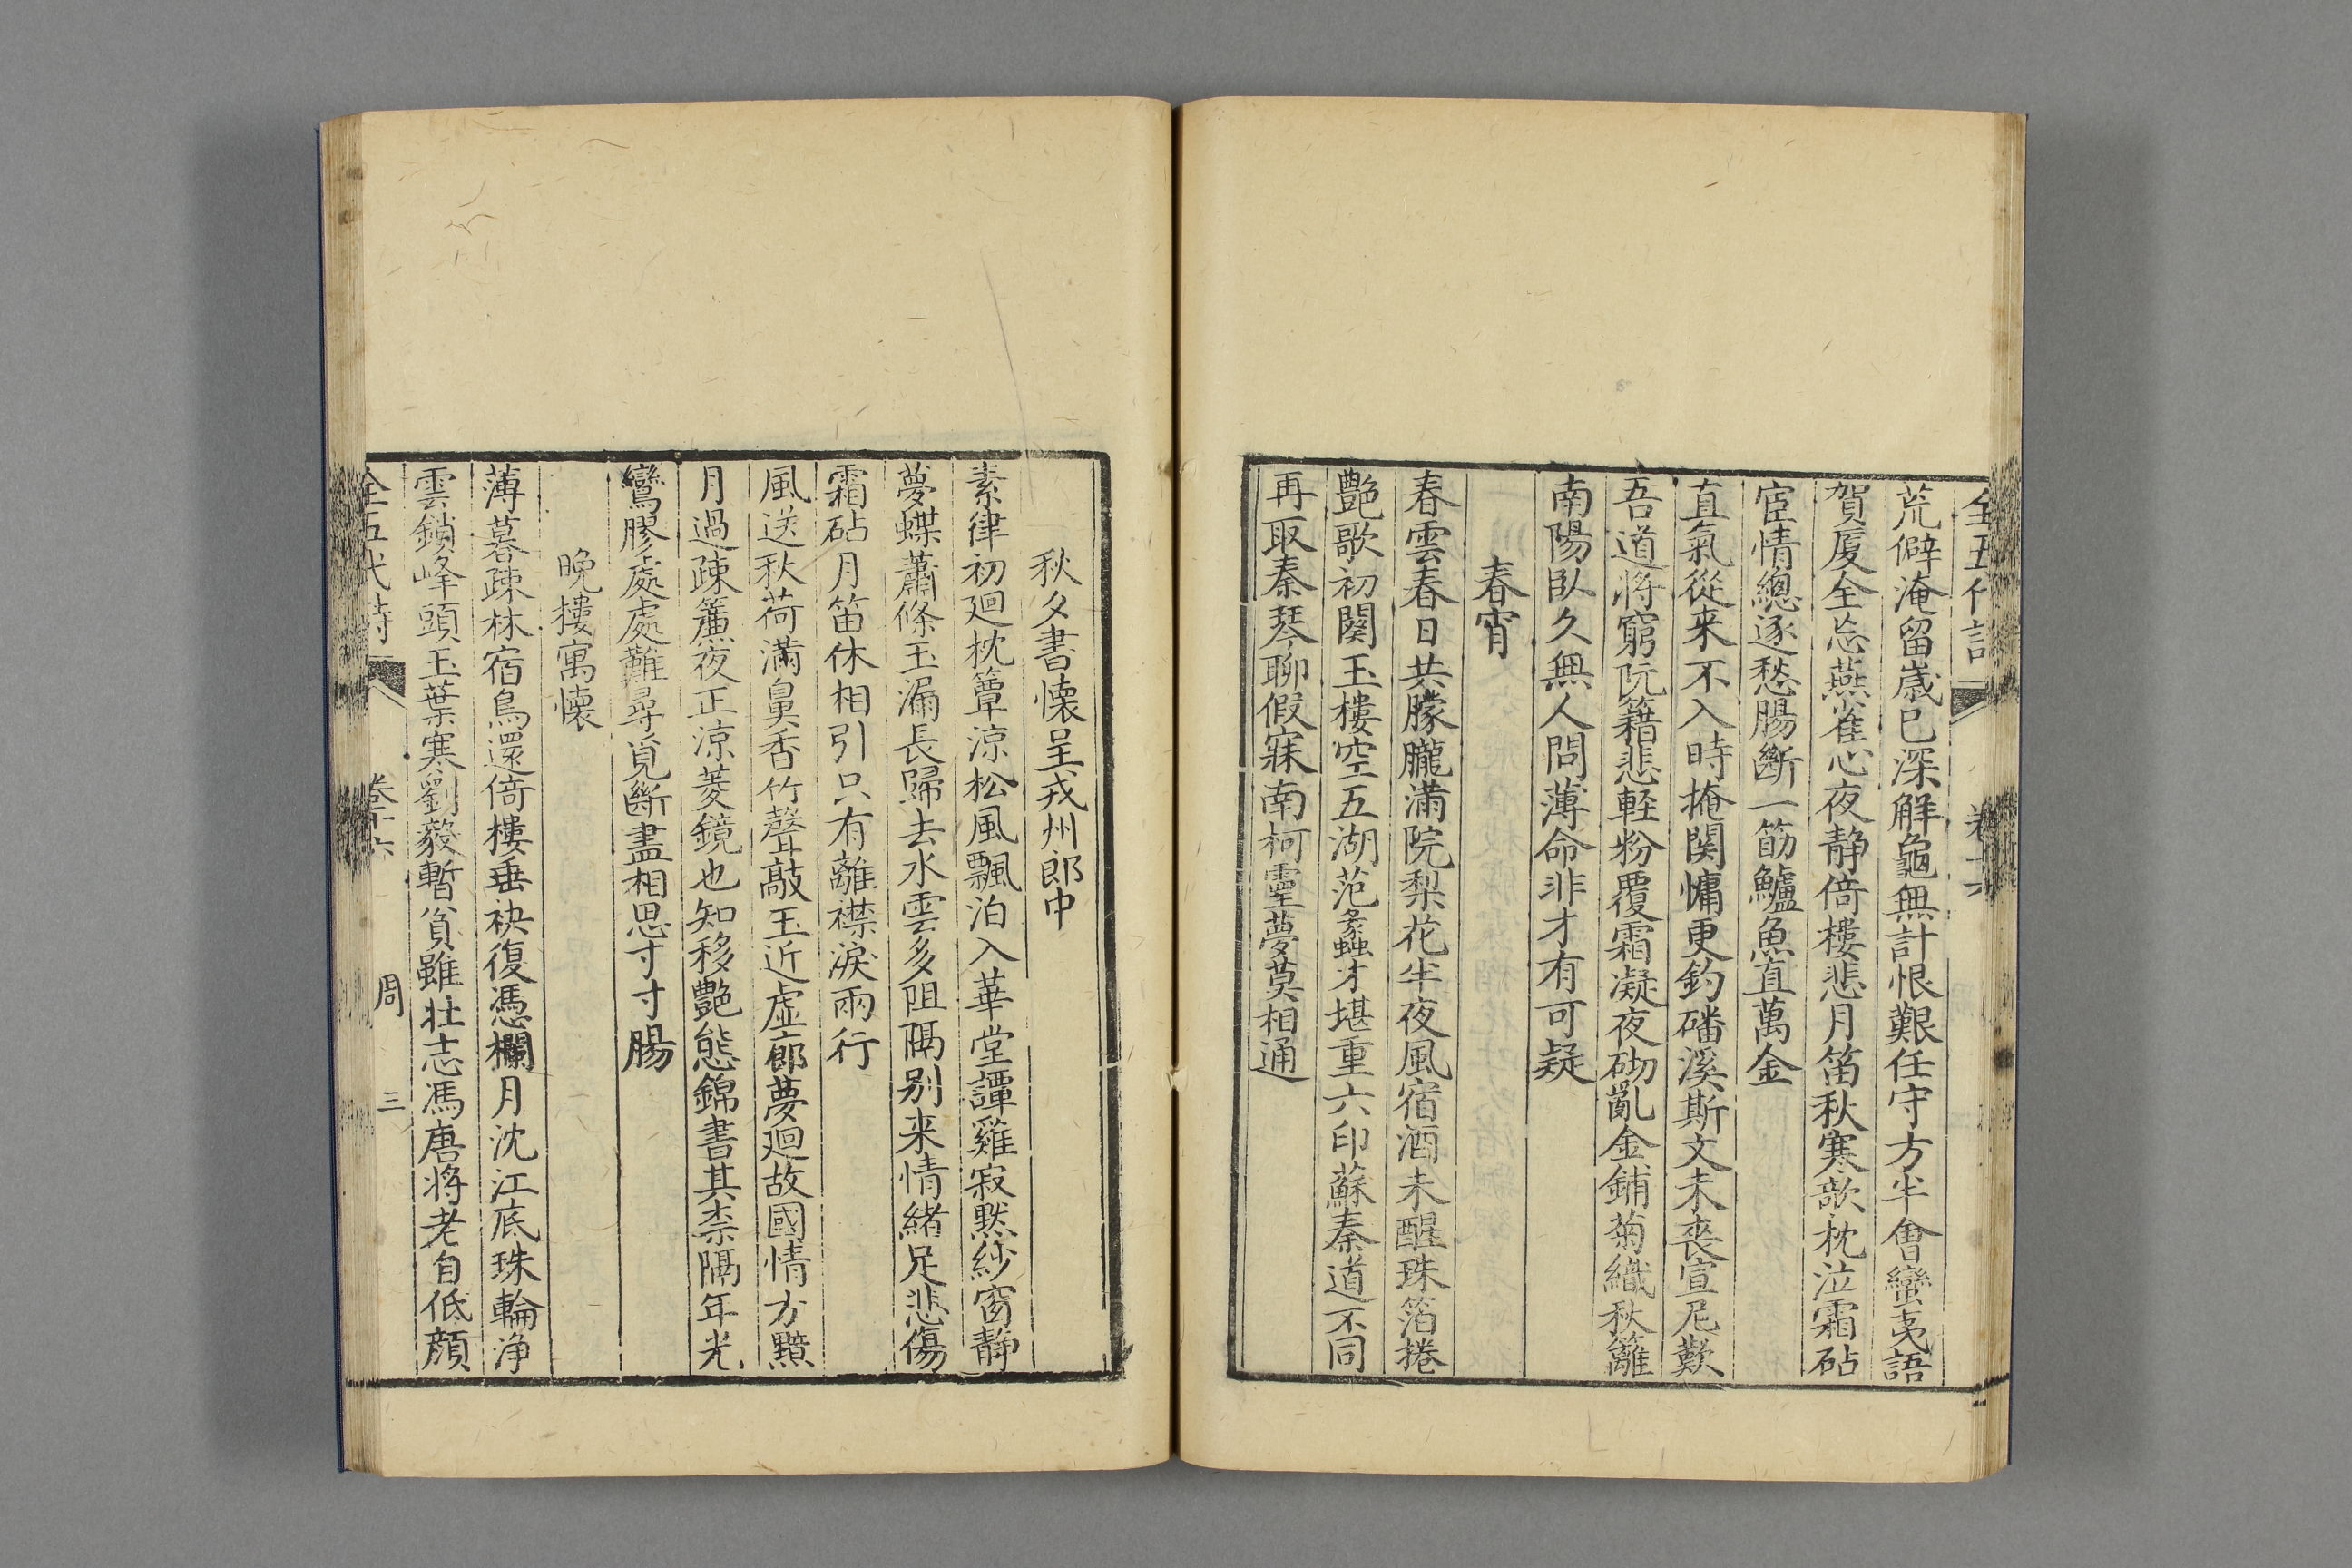 荒僻淹留歲已深解龜無計恨艱任守方半會蠻夷語
賀厦全忘燕雀心夜靜倚樓悲月笛秋寒欹枕泣霜砧
宦情總逐愁腸斷一筯鱸魚直萬金
直氣從來不入時掩関慵更釣磻溪斯文未喪宣尼歎
吾道將窮阮籍悲輕粉覆霜凝夜砌亂金鋪菊織秋籬
南陽臥久無人問薄命非才有可疑
春宵
春雲春日共朦朧滿院梨花半夜風宿酒未醒珠箔捲
艷歌初闋玉樓空五湖范蠡才堪重六印蘇秦道不同
再取秦琴聊假寐南柯靈夢莫相通
秋夕書懷呈戎州郎中
素律初廻枕簟涼松風飄泊入華堂譚雞寂默紗窗靜
夢蝶蕭條玉漏長歸去水雲多阻隔別来情緒足悲傷
霜砧月笛休相引只有離襟淚兩行
風送秋荷滿臭香竹聲敲玉近虛廊夢廻故國情方黯
月過疎簾夜正涼菱鏡也知移艷態錦書其柰隔年光
鸞膠處處難尋覓斷盡相思寸寸腸
晩樓寓懷
薄暮疎林宿鳥還倚樓垂袂復憑欄月沈江底珠輪淨
雲鎖峰頭玉葉寒劉毅暫貧雖壯志馮唐將老自低顔
全五代詩
卷十六
周
三